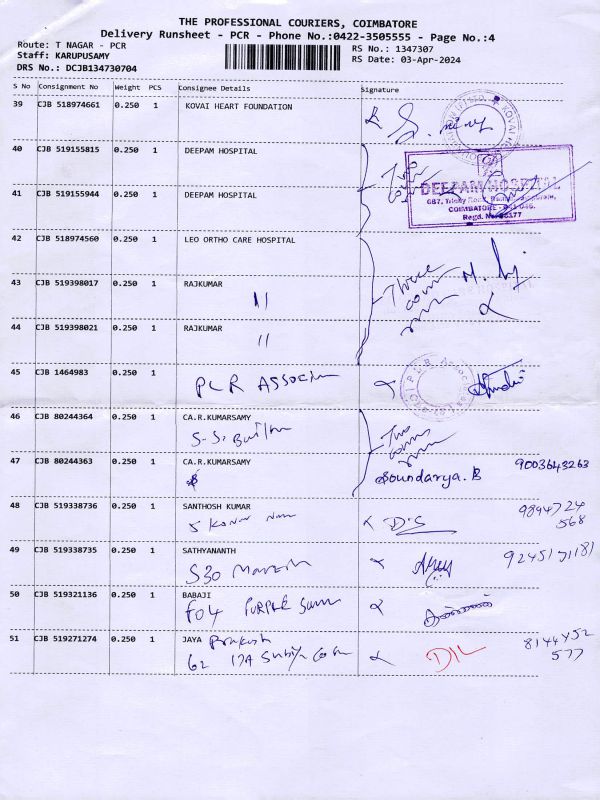 THE PROFESSIONAL COURIERS, COIMBATORE
Delivery Runsheet - PCR - Phone No.:0422-3505555 - Page No.:4
Route: T NAGAR - PCR
RS No.: 1347307
Staff: KARUPUSAMY
RS Date: 03-Apr-2024
DRS No.: DCJB134730704
S No Consignment No Weight PCS Consignee Details Signature
39 CJB 518974661 0.250 1 KOVAI HEART FOUNDATION
40 CJB 519155815 0.250 1 DEEPAM HOSPITAL
DEEPAM HOSPITAL
41 CJB 519155944 0.250 1 DEEPAM HOSPITAL
COIMBATORE - 641 046.
42 CJB 518974560 0.250 1 LEO ORTHO CARE HOSPITAL
Three
43 CJB 519398017 0.250 1 RAJKUMAR
11
44 CJB 519398021 0.250 1 RAJKUMAR
11
45 CJB 1464983 0.250 1
PLR
46 CJB 80244364 0.250 1 CA.R.KUMARSAMY
S.S.
Two
47 CJB 80244363 0.250 1 CA.R.KUMARSAMY
Soundarya.B 9003643263
48 CJB 519338736 0.250 1 SANTHOSH KUMAR
D'S 9894724
568
49 CJB 519338735 0.250 1 SATHYANANTH
530
9245171181
50 CJB 519321136 0.250 1 BABAJI
F04 PURPLE
51 CJB 519271274 0.250 1 JAYA Prakash
62 17A
8144452
577